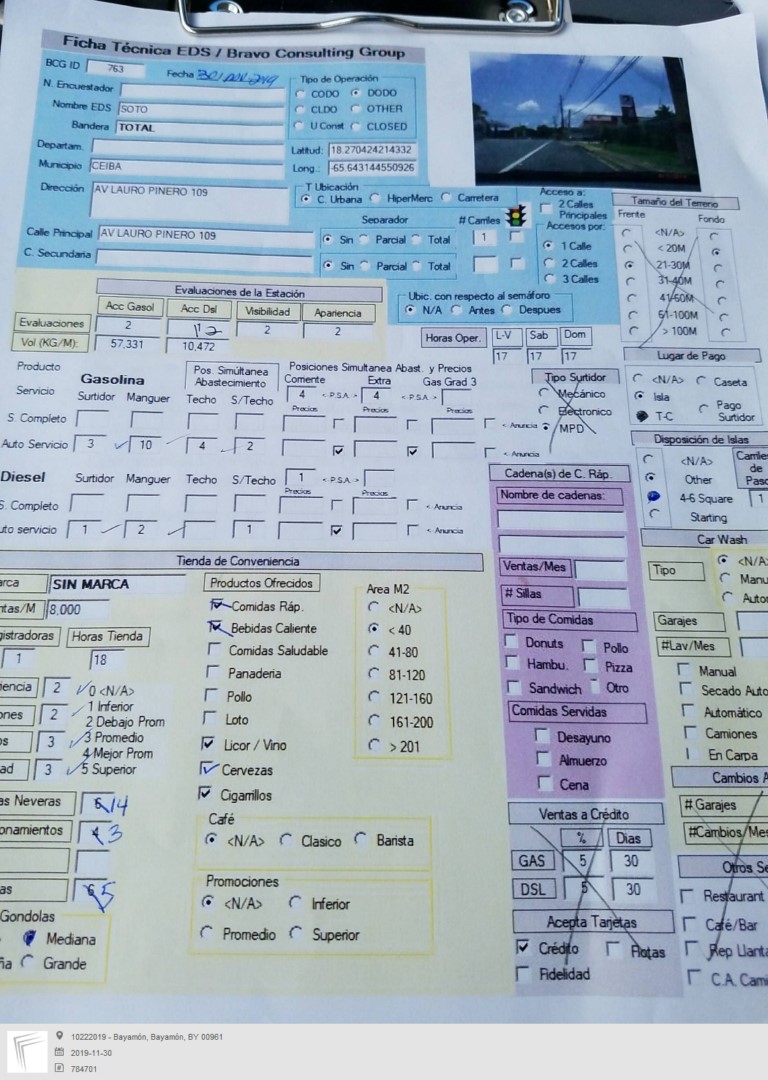 Ficha Técnica EDS / Bravo Consulting Group
BCG ID 763 Fecha
N. Encuestador
Nombre EDS SOTO
Bandera TOTAL
Departam.
Municipio CEIBA
Dirección AV LAURO PINERO 109
Calle Principal AV LAURO PINERO 109
C. Secundaria
Tipo de Operación
CODO DODO
CLDO OTHER
U Const CLOSED
Latitud: 18.270424214332
Long.: -65.643144550926
T Ubicación
C. Urbana HiperMerc Carretera
Separador # Carriles
Sin Parcial Total 1
Sin Parcial Total
Acceso a:
2 Calles
Principales
Accesos por:
1 Calle
2 Calles
3 Calles
Tamaño del Terreno
Frente Fondo
<N/A>
< 20M
21-30M
31-40M
41-60M
61-100M
> 100M
Evaluaciones de la Estación
Acc Gasol Acc Dsl Visibilidad Apariencia
Evaluaciones 2 2 2 2
Vol (KG/M): 57,331 10,472
Ubic. con respecto al semáforo
N/A Antes Despues
Horas Oper. L-V Sab Dom
17 17 17
Lugar de Pago
<N/A> Caseta
Isla
T-C Pago
Surtidor
Producto
Servicio
Gasolina
Surtidor Manguer
Pos. Simútanea
Abastecimiento
Techo S/Techo
Posiciones Simultanea Abast. y Precios
Corriente Extra Gas Grad 3
4 <- P.S.A -> 4 <- P.S.A ->
Precios Precios Precios
S. Completo <- Anuncia
Auto Servicio 3 10 4 2 <- Anuncia
Tipo Surtidor
Mecánico
Electronico
MPD
Disposición de Islas
<N/A>
Other
4-6 Square
Starting
Carriles
de
Paso
1
Diesel Surtidor Manguer Techo S/Techo 1 <- P.S.A ->
Precios Precios
S. Completo <- Anuncia
uto servicio 1 2 1 <- Anuncia
Cadena(s) de C. Ráp.
Nombre de cadenas:
Ventas/Mes
# Sillas
Tipo de Comidas
Donuts Pollo
Hambu. Pizza
Sandwich Otro
Comidas Servidas
Desayuno
Almuerzo
Cena
Car Wash
Tipo <N/A>
Manu
Autor
Garajes
#Lav/Mes
Manual
Secado Auto
Automático
Camiones
En Carpa
Tienda de Conveniencia
arca SIN MARCA
tas/M 8,000
gistradoras Horas Tienda
1 18
iencia 2 0 <N/A>
ones 2 1 Inferior
2 Debajo Prom
os 3 3 Promedio
4 Mejor Prom
ad 3 5 Superior
as Neveras 14
onamientos 4 3
as 6 5
Gondolas
Mediana
ña Grande
Productos Ofrecidos
Comidas Ráp.
Bebidas Caliente
Comidas Saludable
Panaderia
Pollo
Loto
Licor / Vino
Cervezas
Cigarrillos
Area M2
<N/A>
< 40
41-80
81-120
121-160
161-200
> 201
Café
<N/A> Clasico Barista
Promociones
<N/A> Inferior
Promedio Superior
Ventas a Crédito
% Dias
GAS 5 30
DSL 5 30
Acepta Tarjetas
Crédito Flotas
Fidelidad
Cambios A
# Garajes
#Cambios/Mes
Otros Se
Restaurant
Café/Bar
Rep Llanta
C.A. Cami
10222019 - Bayamón, Bayamón, BY 00961
2019-11-30
784701